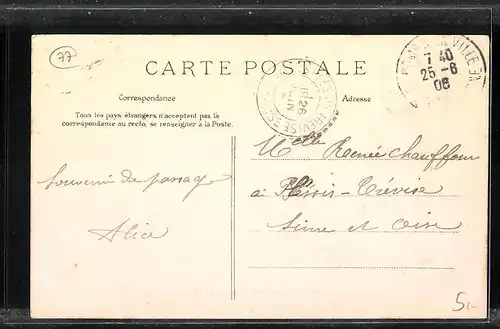 77
CARTE POSTALE
Correspondance
Adresse
Tous les pays étrangers n'acceptent pas la
correspondance au recto, se renseigner à la Poste.
7 40
25 - 6
08
26
JUIN
Melle Renée Chauffour
à Plessis-Trévise
Seine et Oise
Souvenir de passage
Alice
5.-